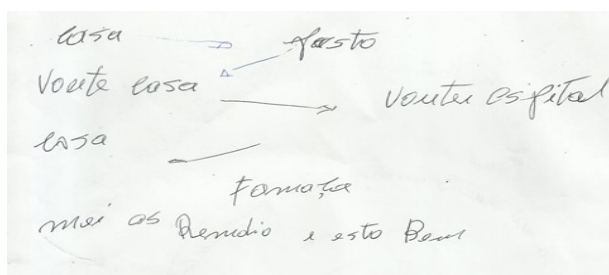 casa posto
Voute casa
voutei ospital
casa
Tomaça
mei as Remedio e esto Bem